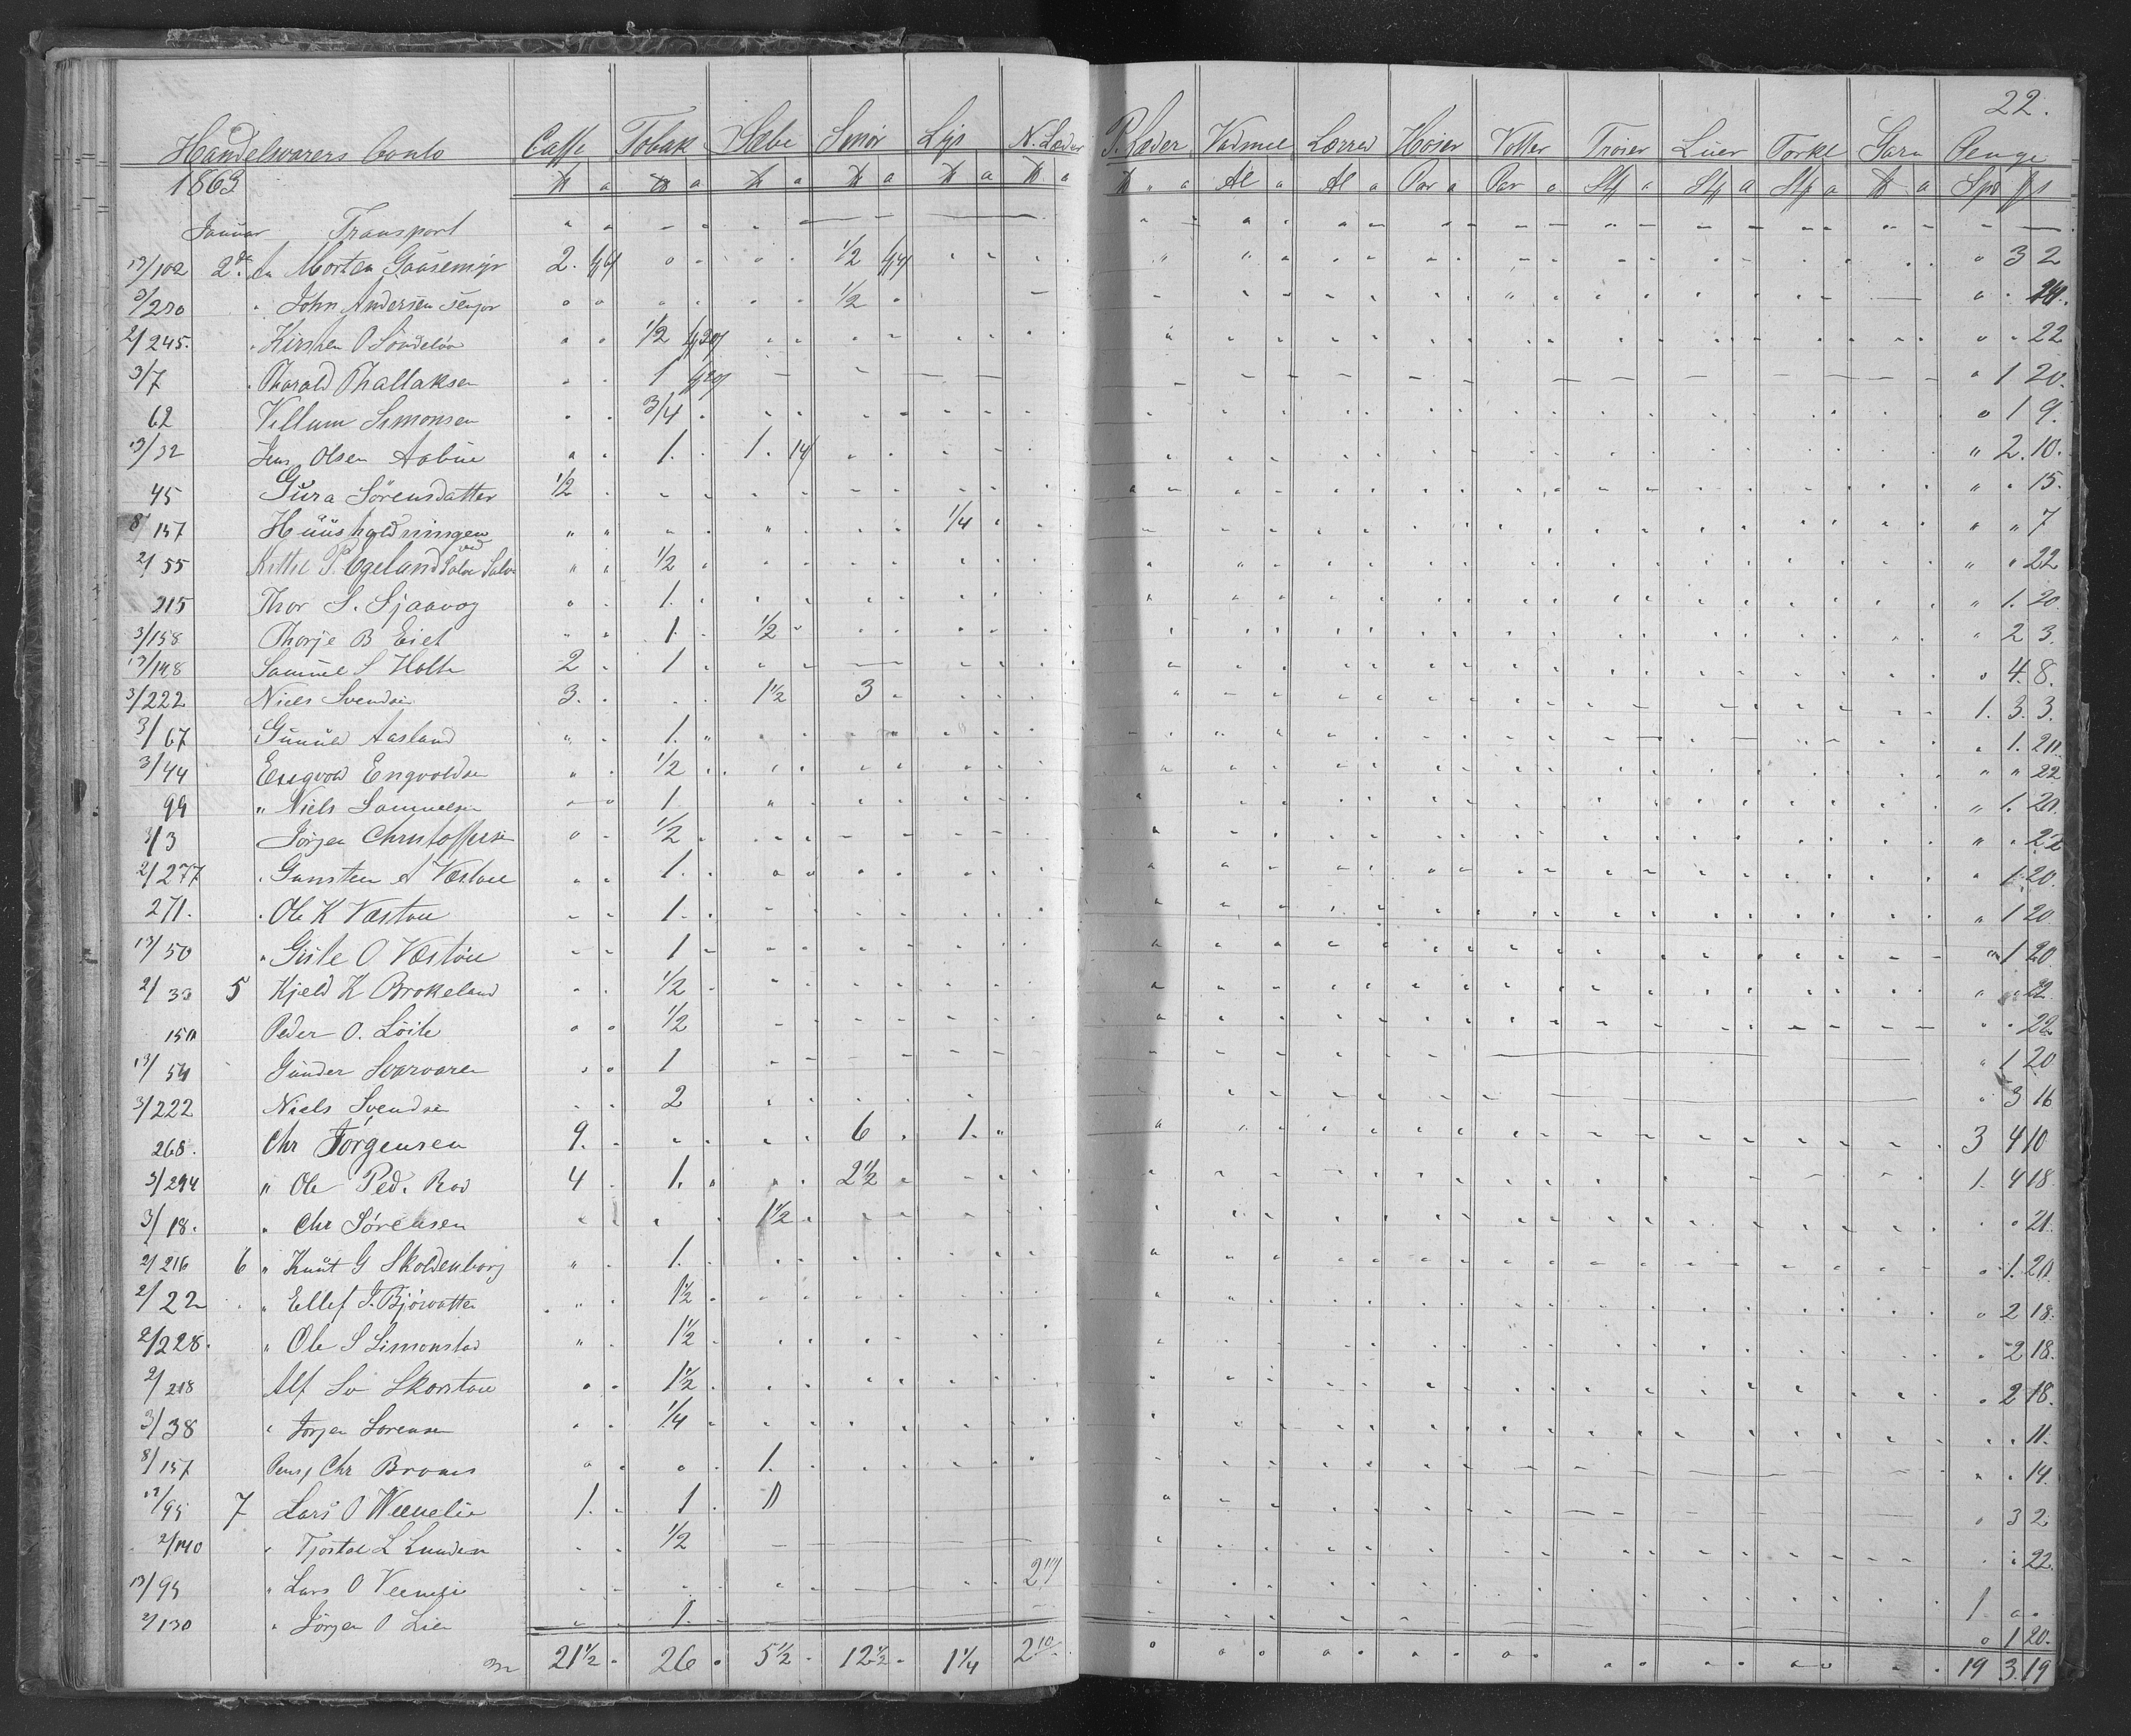 22.
Handelsvarers Conto Caffe Tobak Sæbe Smør Lys N. Læder P. Læder Vadmel Lærred Hoser Votter Trøier Luer Tørkl Garn Penge
1863 ℔ a ℔ a ℔ a ℔ a ℔ a ℔ a ℔ a Al a Al a Par a Par a Stk a Stk a Stk a ℔ a Spd ß
Januar Transport
13/102 2 An Morten Gaasemyr 2. 1/2 3 2
3/280 " John Andersen Senjor 1/2
2/245. " Kirsten O Sondeløa 1/2 22
3/7 " Tharald Thallaksen 1 1 20.
62 Vellum Simonsen 3/4 1 9.
13/32 Jens Olsen Aabue 1. 1. 14 2. 10.
45 Gura Sørensdatter 1/2 15.
8/157 Huusholdningen 1/4 7
2/55 Kittel P. Egeland ved Salve Salve 1/2 22
215 Thor S. Sjaavog 1. 1. 20
3/158 Thorje B Eiet 1. 1/2 2 3.
13/148 Samuel S Holte 2 1 4. 8.
3/222 Niels Svendse 3. 1 1/2 3 1. 3. 3.
3/67 Gunuld Aasland 1. 1. 20
3/44 Engvold Engvoldse 1/2 22
99 " Niels Samuelse 1 1. 20.
3/3 Jørgen Christofferse 1/2 22
2/277 " Gunsten A Væstøu 1. 1. 20.
271. " Ole K Væstøu 1. 1 20
13/50 " Gisle O Væstøu 1 1 20
2/33 5 Kjeld K Brokeland 1/2 22.
150 Peder O. Løite 1/2 22.
13/54 Gunder Svarvaren 1 1 20
3/222 Niels Svendse 2 3 16
268. Chr Jørgensen 9. 6 1. 3 4 10
3/294 " Ole Ped. Rod 4 1. 2 1/2 1. 4 18
3/18. " Chr Sørensen 1 1/2 21.
2/216 6 " Knut G Skoldenborg 1. 1. 20
2/22 " Ellef J. Bjørvatten 1 1/2 2 18.
2/228. " Ole S Simonstad 1 1/2 2 18.
2/218 Alf Sv Skorstøu 1 1/2 2 18.
3/38 " Jørgen Sørensen 1/4 11.
8/157 Pensj Chr Broms 1. 14.
13/95 7 Lars O Veenelie 1. 1 3 2
2/140 " Tjøstol L Lunden 1/2 22.
13/95 " Lars O Veenelie 1
2/130 " Jørgen O Lien 1. 1 20.
21 1/2 26 5 1/2 12 1/2 1 1/4 2 10 19 3. 19